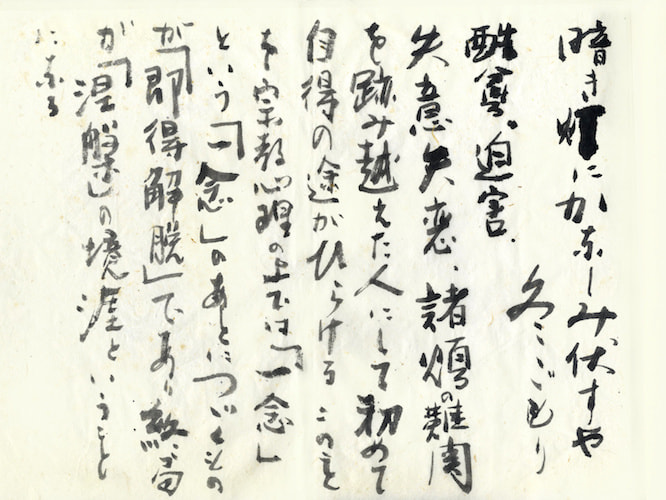 暗き灯にかなしみ伏すや
冬ごもり
酷暮、迫害、
失意失恋、諸煩の難関
を踏み越えた人にして初めて
自得の途がひらける このこと
を宗教心理の上では「一念」
という「一念」のあとにつゞくもの
が「即得解脱」であり終局
が「涅槃」の境涯ということ
になる